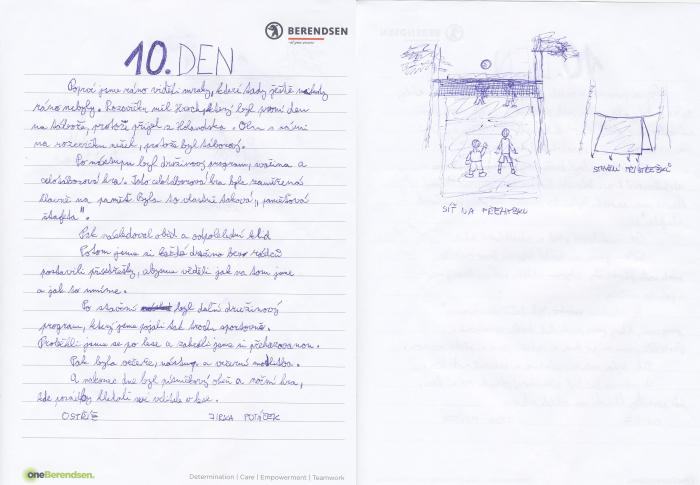 10. DEN
BERENDSEN
Poprvé jsme ráno viděli mraky, které tady ještě nikdy
ráno nebyly. Rozcvičku měl Hroch, který byl první den
na táboře, protože přijel z Holandska. Oba s námi
na rozcvičku nešel, protože byl táborový.
Po nástupu byl družinový program, svačina a
celotáborová hra. Tato celotáborová hra byla zaměřená
hlavně na paměť. Byla to vlastně taková "paměťová
štafeta".
Pak následoval oběd a odpolední klid
Potom jsme si každá družina bez rádců
postavili přístřešky, abychom věděli jak na tom jsme
a jak to umíme.
Po stavění byl další družinový
program, který jsme pojali tak trochu sportovně.
Proběhli jsme se po lese a zahráli jsme si přehazovanou.
Pak byla večeře, nástup a večerní modlitba.
A nakonec dne byl písničkový oheň a noční hra,
kde posádky hledali své velitele v lese.
OSTŘÍŽ JIRKA POTÁČEK
oneBerendsen.
Determination | Care | Empowerment | Teamwork
BERENDSEN
SÍŤ NA PŘEHAZKU
STAVĚNÍ PŘÍSTŘEŠKŮ